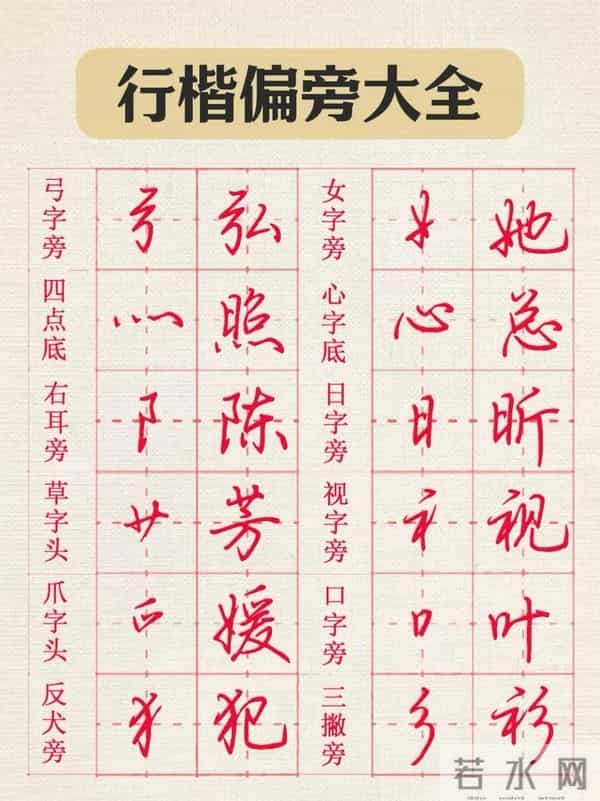 行楷偏旁大全
弓字旁 弓 弘 女字旁 女 她
四点底 灬 照 心字底 心 总
右耳旁 阝 陈 日字旁 日 昕
草字头 艹 芳 视字旁 礻 视
爪字头 爫 媛 口字旁 口 叶
反犬旁 犭 犯 三撇旁 彡 衫
若水网